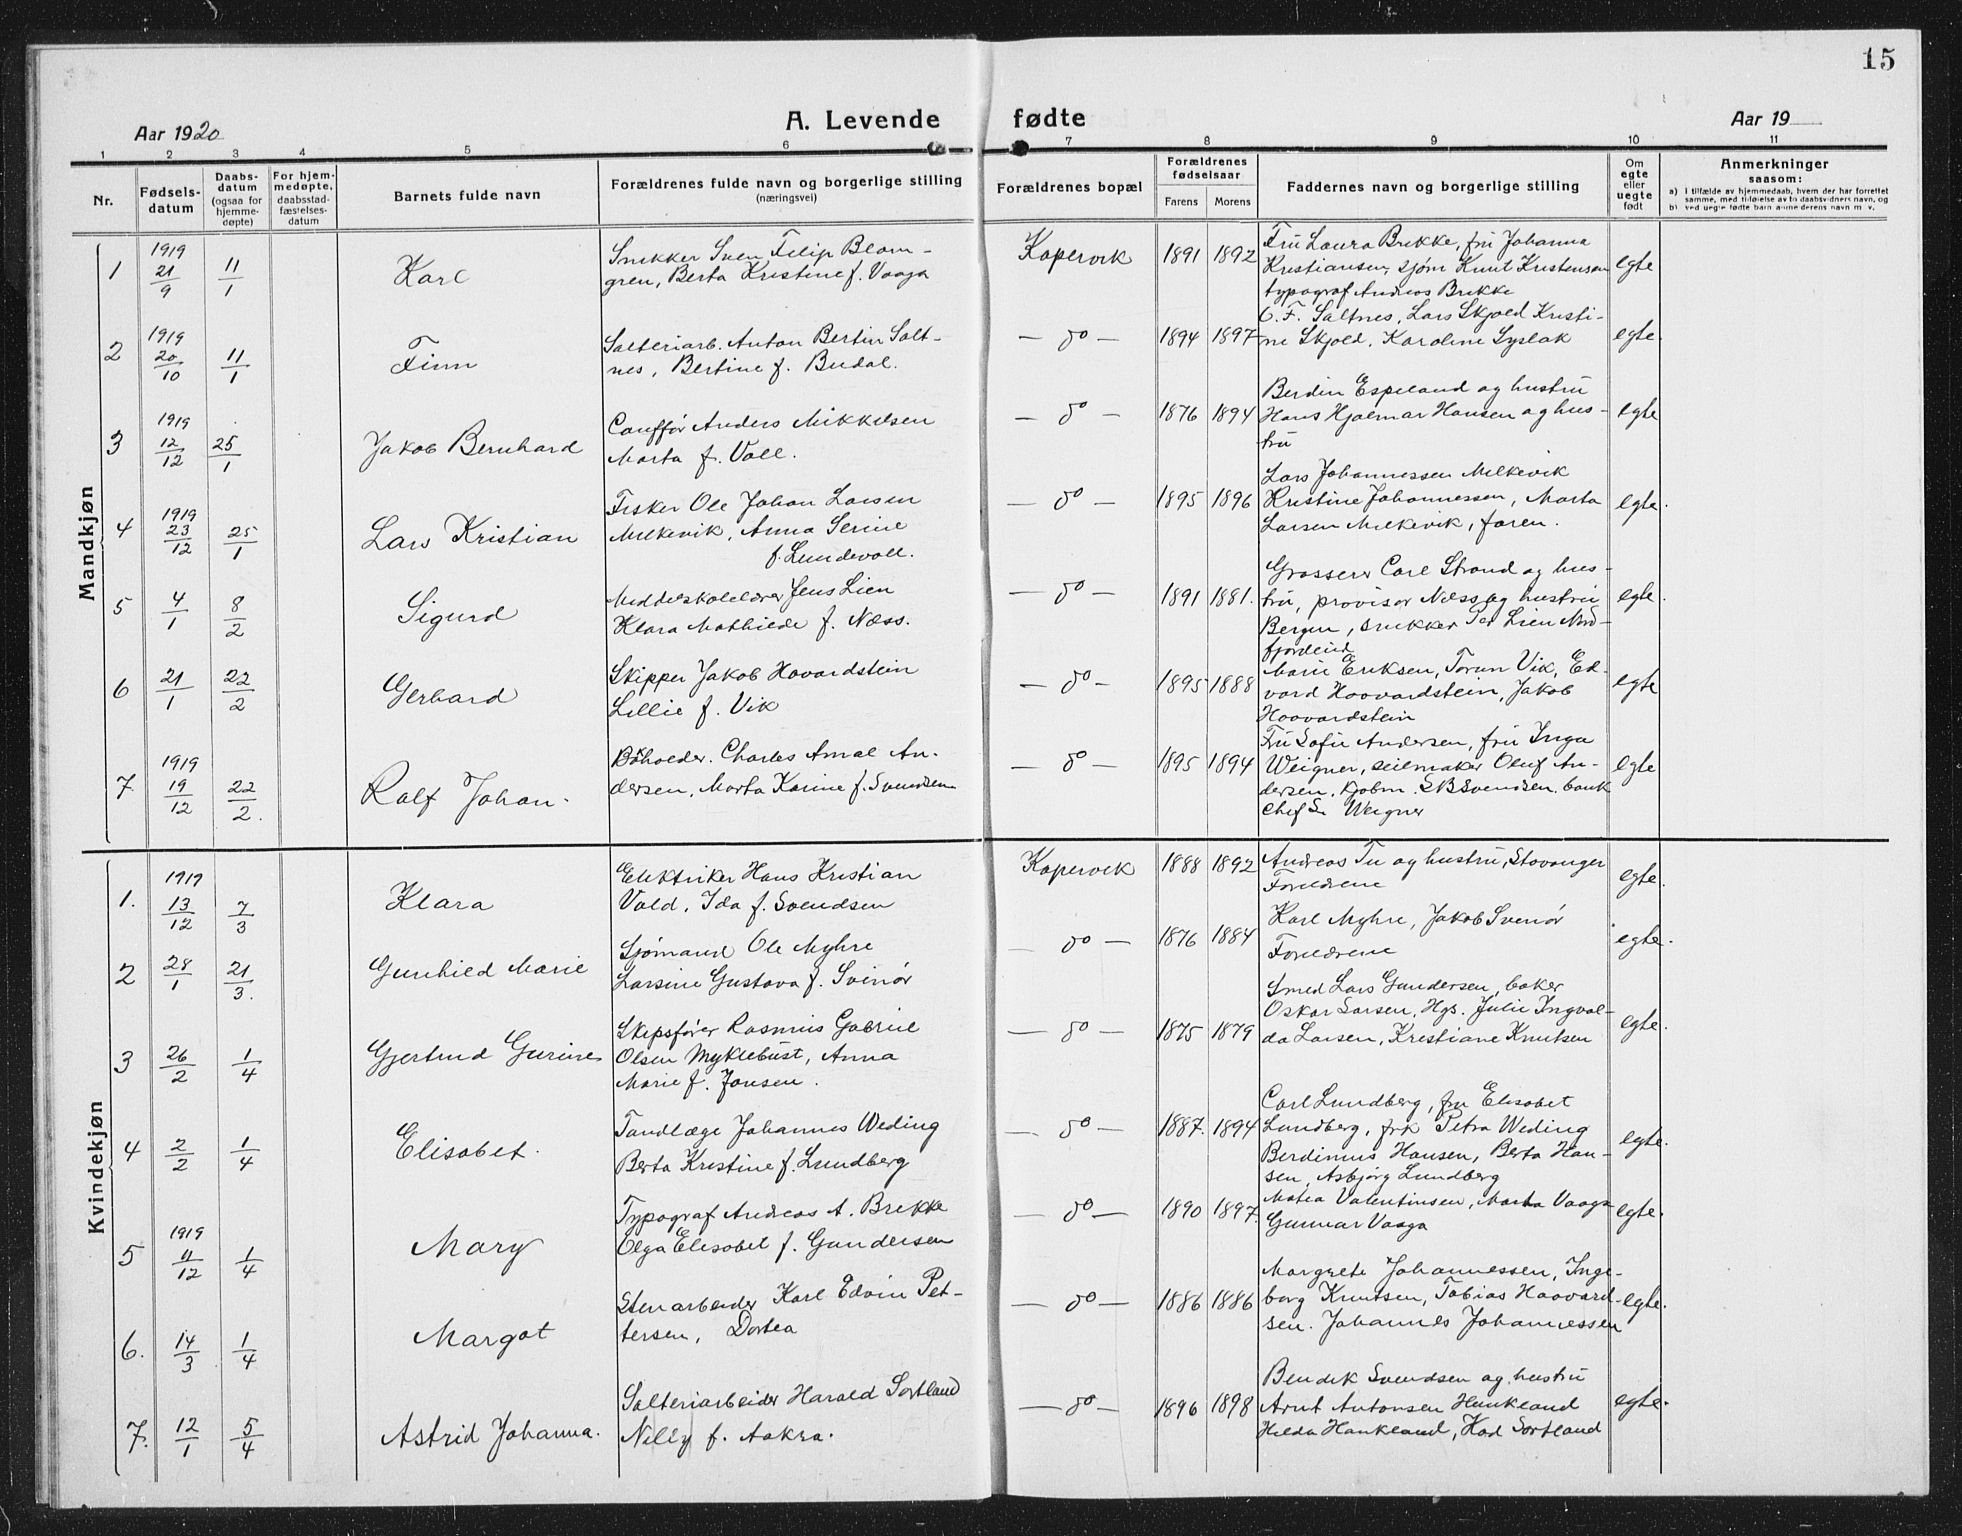 15
A. Levende fødte
Aar 1920
Aar 19
1 2 3 4 5 6 7 8 9 10 11
Nr.
Fødsels-
datum
Daabs-
datum
(ogsaa for
hjemme-
døpte)
For hjem-
medøpte,
daabsstad-
fæstelses-
datum
Barnets fulde navn
Forældrenes fulde navn og borgerlige stilling
(næringsvei)
Forældrenes bopæl
Forældrenes
fødselsaar
Farens Morens
Faddernes navn og borgerlige stilling
Om
egte
eller
uegte
født
Anmerkninger
saasom:
a) I tilfælde av hjemmedaab, hvem der har forrettet
samme, med tilføielse av to daabsvidners navn, og
b) ved uegte fødte barn anmelderens navn m. v.
Mandkjøn
1 1919 21/9 11/1 Karl
Snekker Sven Filip Blom-
gren, Berta Kristine f. Vaaga
Kopervik 1891 1892
Fru Laura Brekke, fru Johanna
Kristiansen, sjøm Knut Kristensen
typograf Andreas Brekke
egte
2 1919 20/10 11/1 Finn
Salteriarb. Anton Bertin Salt-
nes, Bertine f. Budal.
— do — 1894 1897
O. F. Saltnes, Lars Skjold Kristi-
ne Skjold, Karoline Syslak
egte.
3 1919 12/12 25/1 Jakob Bernhard
Cauffør Anders Mikkelsen
Marta f. Vall.
— do — 1876 1894
Berdin Espeland og hustru
Hans Hjalmar Hansen og hus-
tru
egte
4 1919 23/12 25/1 Lars Kristian
Fisker Ole Johan Larsen
Melkevik, Anna Serine
f. Lundevall.
— do — 1895 1896
Lars Johannessen Melkevik
Kristine Johannessen, Marta
Larsen Melkevik, faren.
egte.
5 4/1 8/2 Sigurd
Middelskolelærer Jens Lien
Klara Mathilde f. Næss.
— do — 1891 1881.
Grosserer Carl Strand og hus-
tru, provisor Næss og hustru
Bergen, snekker Per Lien Nord-
fjordeid
egte.
6 21/1 22/2 Gerhard
Skipper Jakob Hovardstein
Lillie f. Vik
— do — 1895 1888
Marie Eriksen, Torun Vik, Ed-
vard Hoovardstein, Jakob
Hoovardstein
egte
7 1919 19/12 22/2. Ralf Johan.
Bøholder. Charles Amal An-
dersen, Marta Karine f. Svendsen
— do — 1895 1894
Fru Sofie Andersen, fru Inga
Weigner, seilmaker Oluf An-
dersen, kjøbm. S B Svendsen, bank
chef S. Weigner
egte
Kvindekjøn
1. 1919 13/12 7/3 Klara
Elektriker Hans Kristian
Vold, Ida f. Svendsen
Kopervik 1888 1892
Andreas Tu og hustru, Stavanger
Foreldrene
egte.
2 28/1 21/3. Gunhild Marie
Sjømand Ole Myhre
Larsine Gustava f. Svinør
— do — 1876 1884
Karl Myhre, Jakob Svenør
Foreldrene
egte.
3 26/2 1/4 Gjertrud Gurine
Skipsfører Rasmus Gabriel
Olsen Myklebust, Anna
Marie f. Jansen.
— do — 1875 1879
Smed Lars Gundersen, baker
Oskar Larsen, Hgs. Julie Ingval-
da Larsen, Kristiane Knutsen
egte.
4 2/2 1/4 Elisabet.
Tandlæge Johannes Weding
Berta Kristine f. Lundberg
— do — 1887. 1894
Carl Lundberg, fru Elisabet
Lundberg, frk Petra Weding
Berdinius Hansen, Berta Han-
sen, Asbjørg Lundberg
egte.
5 1919 11/12 1/4 Mary
Typograf Andreas A. Brekke
Olga Elisabet f. Gundersen
— do — 1890 1897.
Matea Valentinsen, Marta Vaaga
Gunnar Vaaga
egte.
6. 14/3 1/4 Margot
Stenarbeider Karl Edvin Pet-
tersen, Dortea
— do — 1886 1886
Margrete Johannessen, Inge-
borg Knutsen, Tobias Hoovard-
sen. Johannes Johannessen
egte.
7. 12/1 5/4 Astrid Johanna.
Salteriarbeider Harald Sortland
Nelly f. Aakra.
— do — 1896 1898
Bendik Svendsen og hustru
Arnt Antonsen Haukland
Hilda Haukland, Kad Sortland
egte.